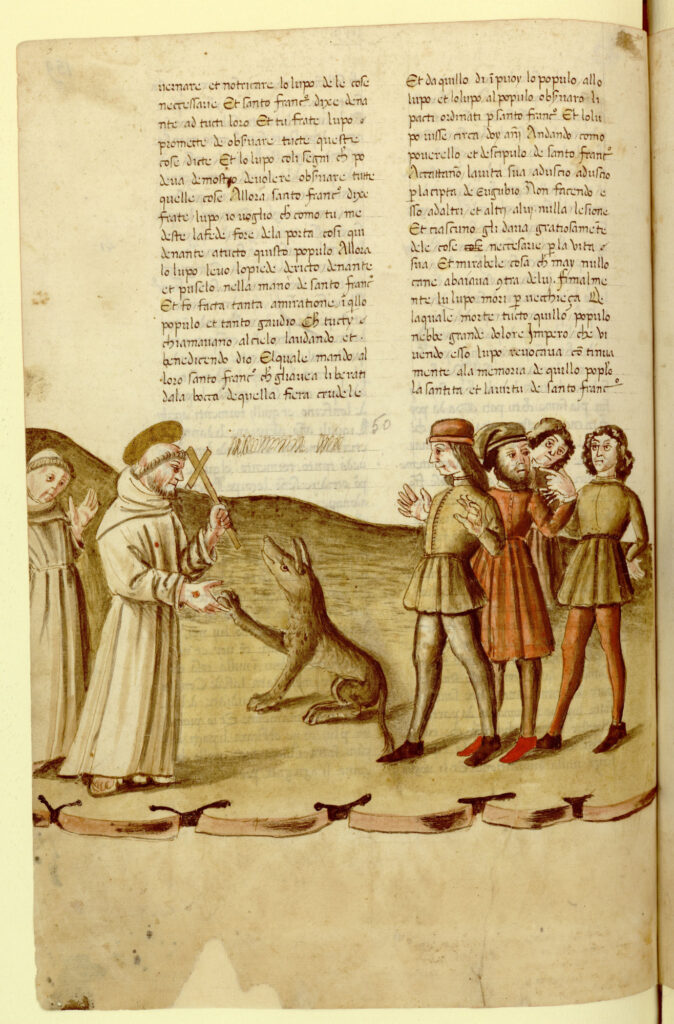 uernare et notricare lo lupo de le cose
necessarie Et santo franc° dixe dena
nte ad tucti loro Et tu frate lupo
promecte de obs̃uare tucte queste
cose dicte Et lo lupo co li segni ch̃ po
deua demostro deuolere obs̃uare tutte
quelle cose Allora santo franc° dixe
frate lupo io uoglio ch̃ como tu me
deste la fede fore de la porta cosi qui
denante atucto quisto populo Allora
lo lupo leuo lopiede dericto denante
et puselo nella mano de santo franc°
Et fo facta tanta amiratione ĩ q̃llo
populo et tanto gaudio Ch̃ tucty
chiamauano al cielo laudando et
benedicendo dio El quale mando al
loro santo franc° ch̃ gliauea liberati
dala bocca de quella fiera crudele
Et da quillo di ĩ puoy lo populo allo
lupo et lo lupo al populo obs̃uaro li
pacti ordinati p santo franc° Et lo lu
po uisse circa doy añj Andando como
pouerello et descipulo de santo franc°
Accattaño la uita sua aduscio aduscio
p la cipta de Eugubio Non facendo e
sso adaltri et altrj aluj nulla lesione
Et ciascuno gli daua gratiosamẽte
de le cose necessarie p la uita
sua Et mirabele cosa ch̃ may nullo
cane abaiaua 9tra de luj finalme
nte lu lupo mori p uecchieça De
la quale morte tucto quillo populo
nebbe grande dolore Impero che ui
uendo esso lupo reuocaua cõ tinua
mente ala memoria de quillo pop̃lo
la santita et la uirtu de santo franc°
50